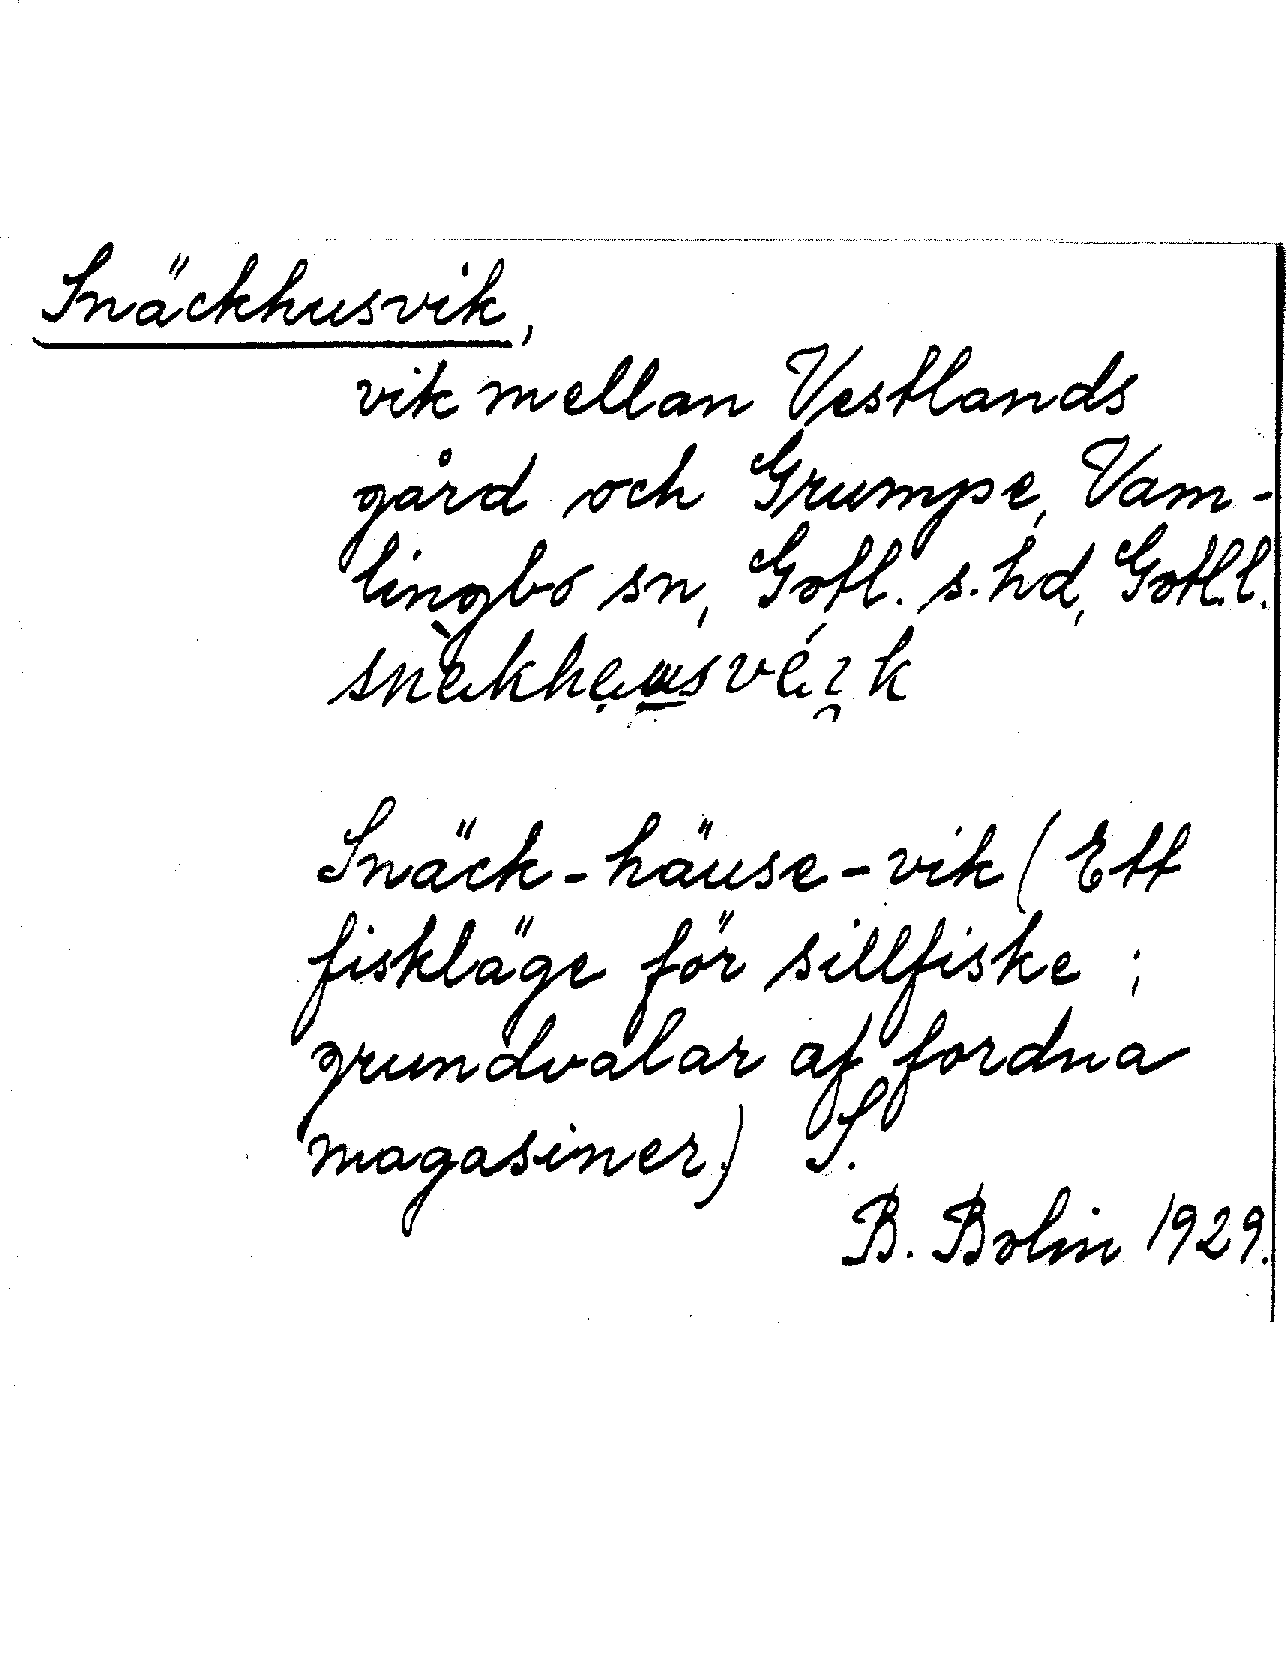 Snäckhusvik,
vik mellan Vestlands
gård och Grumpe, Vam-
lingbo sn, Gotl. s. hd, Gotl.l.
Snäck-häuse-vik (Ett
fiskläge för sillfiske ;
grundvalar af fordna
magasiner.) S.
B. Bolin 1929.